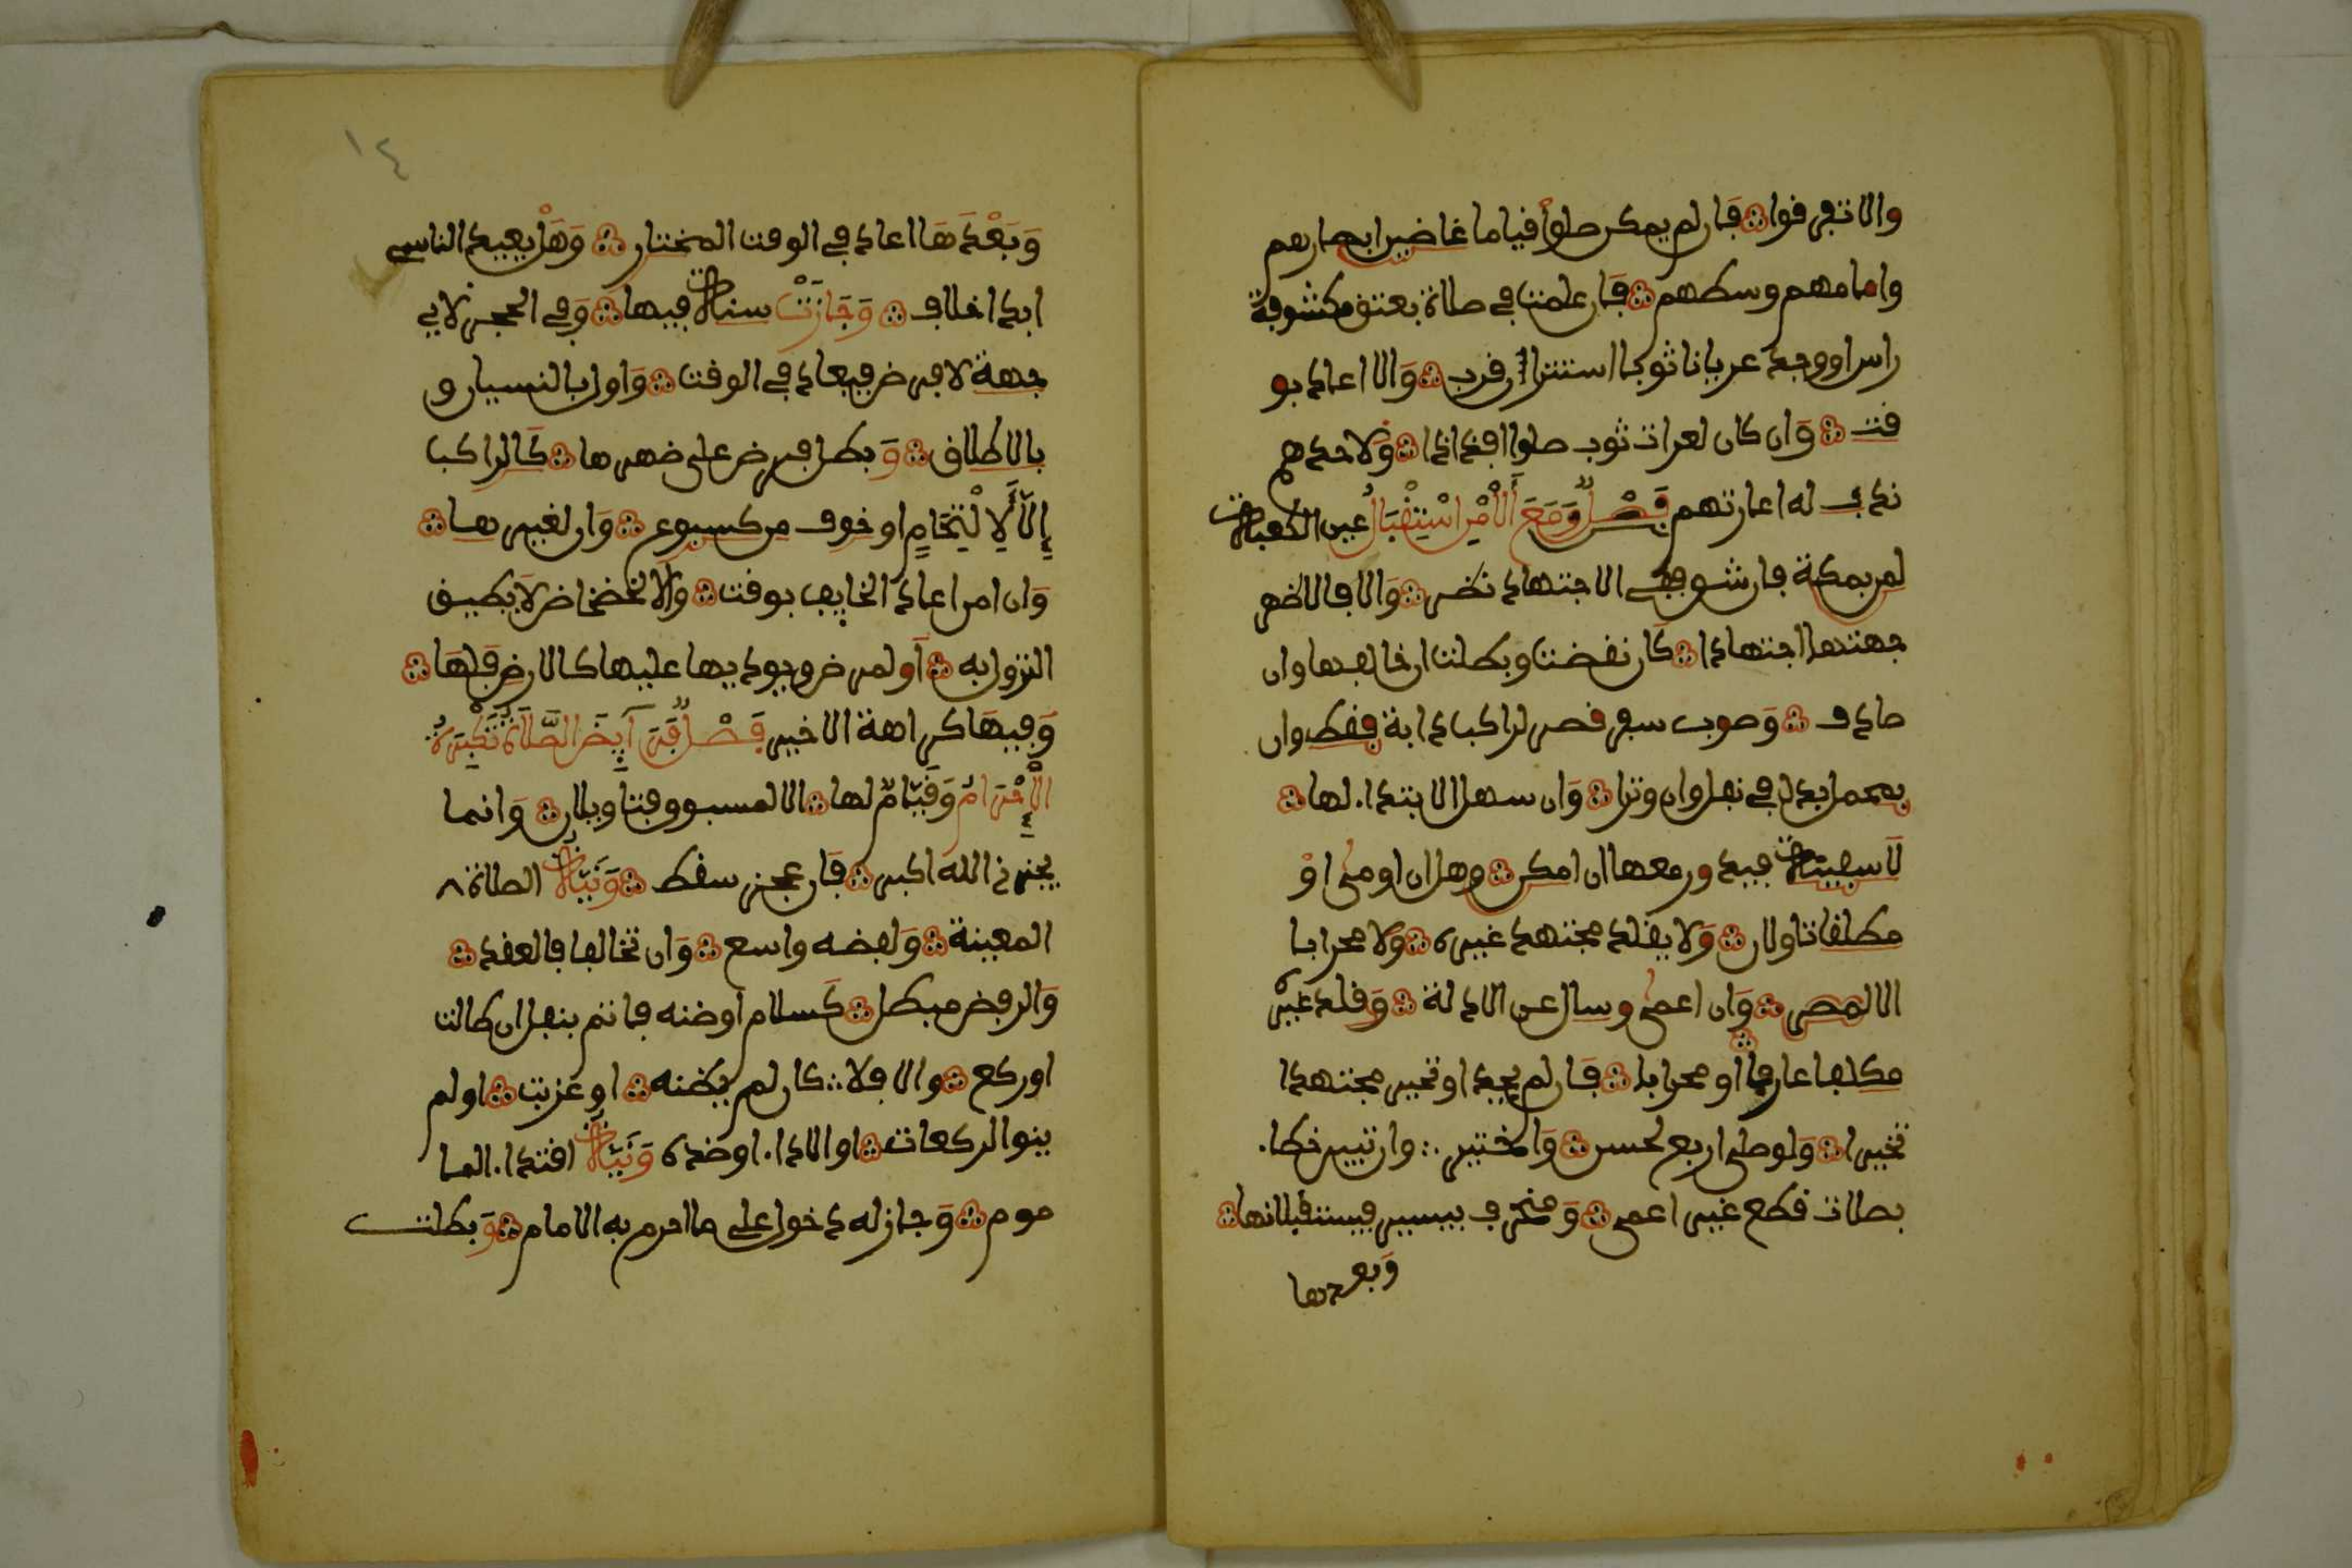 والا تفرقوا فان لم يمكن صلوا قياما غاضين ابصارهم
وامامهم وسطهم فان علمت في صلاة بعتق مكشوفة
راس او وجد عريانا ثوبا استترا ان قرب والا اعاد بو
قت وان كان لعرات ثوب صلوا افذاذا ولاحدهم
ندب له اعارتهم فصل ومع الامن استقبال عين الكعبة
لمن بمكة فان شق ففي الاجتهاد نضر والا فالاضهر
جهتها اجتهادا كان نقضت وبطلت ان خالفها وان
صادف وصوب سفر قصر لراكب دابة فقط وان
بمحمل بدل في نفل وان وترا وان سهل الابتداء لها
لا سفينة فيدور معها ان امكن وهل ان اومئ او
مطلقا تاولان ولا يقلد مجتهد غيره ولا محرابا
الا لمصر وان اعمى وسال عن الادلة وقلد غيره
مكلفا عارفا او محرابا فان لم يجد او تحير مجتهدا
تخيرا ولو صلى اربع لحسن واختير وان تبين خطا
بصلات قطع غير اعمى ومنحرف بيسير فيستقبلانها
وبعدها
١٤
وبعدها اعاد في الوقت المختار وهل يعيد الناسي
ابدا خلاف وجازت سنة فيها وفي الحجر لاي
جهة لا فرض فيعاد في الوقت واول بالنسيان و
بالاطلاق وبطل فرض على ضهرها كالراكب
الا لالتحام او خوف من كسبوع وان لغيرها
وان امن اعاد الخايف بوقت والا لخضخاض لا يطيق
النزول به او لمرض ويوديها عليها كالارض فلها
وفيها كراهة الاخير فصل فرايض الصلاة تكبيرة
الاحرام وقيام لها الا لمسبوق فتاويلان وانما
يجزئ الله اكبر فان عجز سقط ونية الصلاة
المعينة ولفضه واسع وان تخالفا فالعقد
والرفض مبطل كسلام او ضنه فاتم بنفل ان طالت
او ركع والا فلا كان لم يضنه او عزبت او لم
ينو الركعات او الاداء او ضده ونية اقتداء الما
موم وجاز له دخول على ما احرم به الامام وبطلت